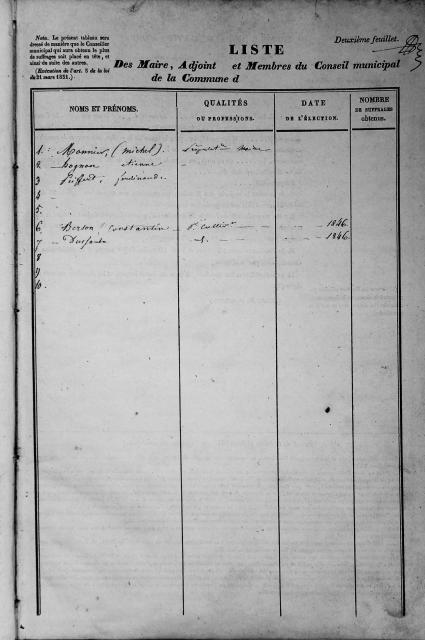 Nota. Le présent tableau sera
dressé de manière que le Conseiller
municipal qui aura obtenu le plus
de suffrages soit placé en tête, et
ainsi de suite des autres.
(Exécution de l'art. 5 de la loi
du 21 mars 1831.)
Deuxième feuillet.
LISTE
Des Maire, Adjoint et Membres du Conseil municipal
de la Commune d
NOMS ET PRÉNOMS.
QUALITÉS
OU PROFESSIONS.
DATE
DE L'ÉLECTION.
NOMBRE
DE SUFFRAGES
obtenus.
1. Monnier, (michel). maire
2. etienne
3 ferdinand
4
5.
6. Berson constantin 1846.
7 1846.
8
9
10.